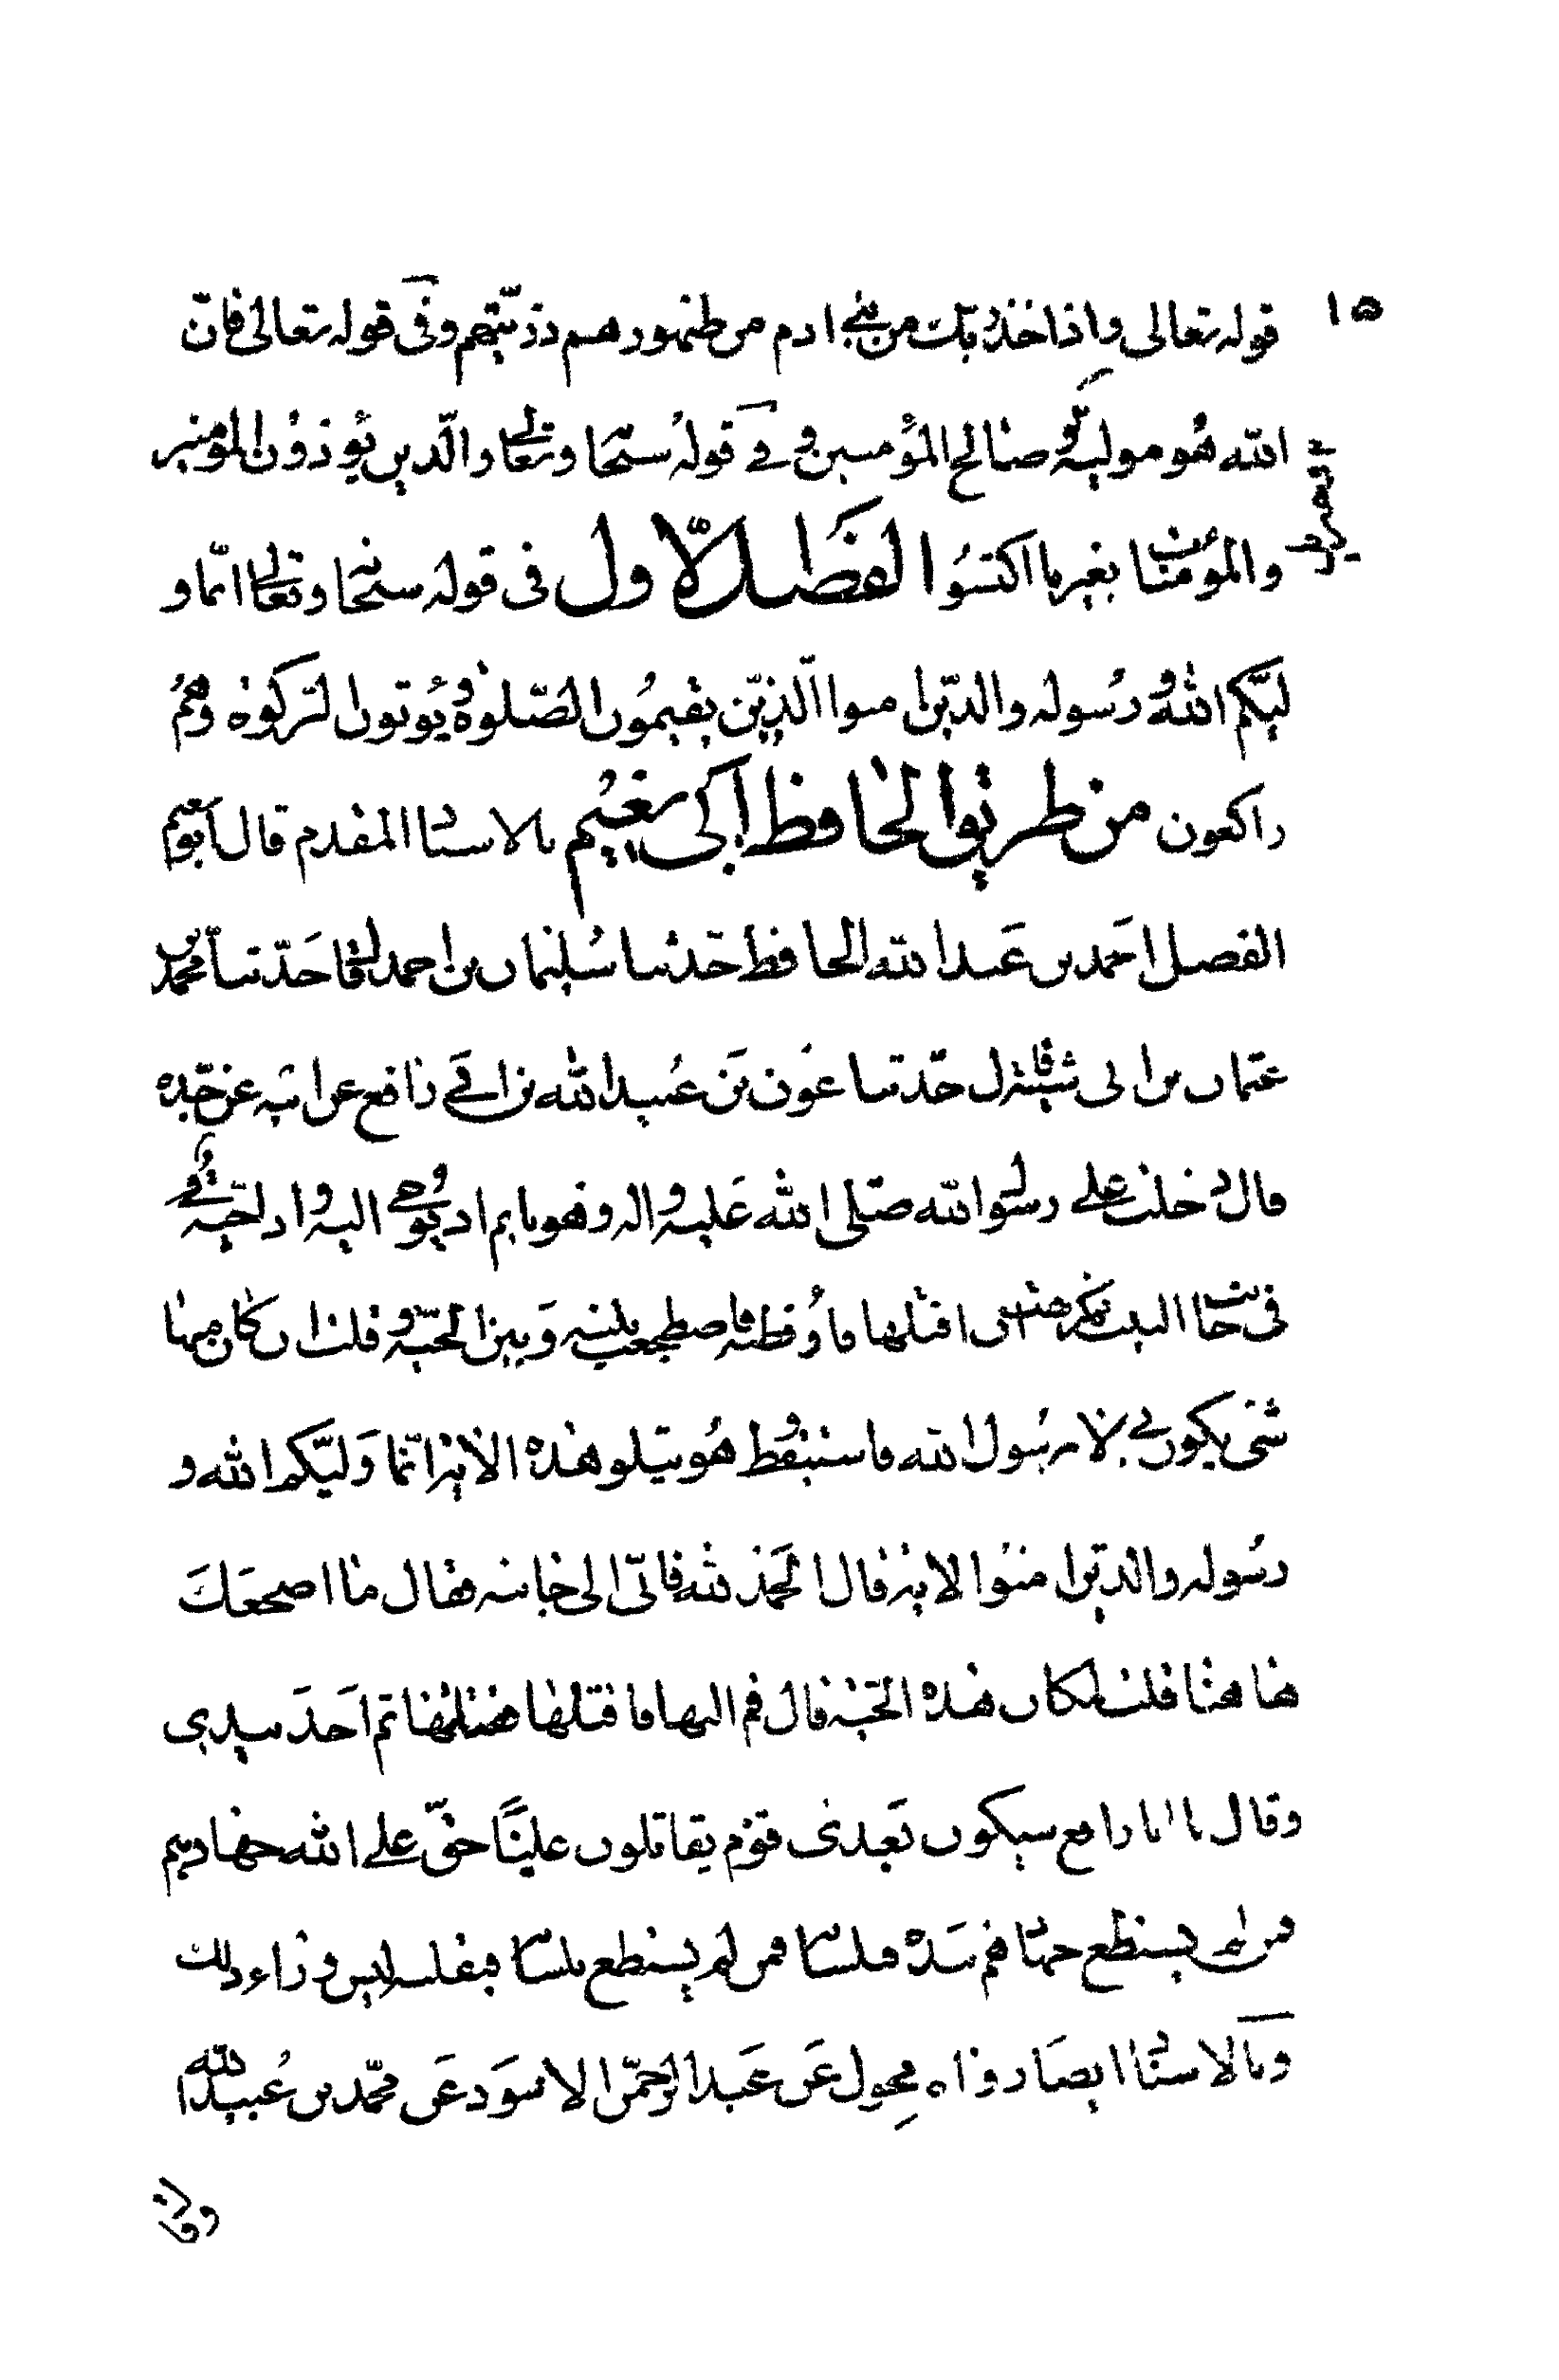 ١٥
قوله تعالى واذا خذ ربك من بنى ادم من ظهورهم ذريتهم وفى قوله تعالى فانّ
الله هو موليه وصالح المؤمنين وفى قوله سبحا وتعالى والّذين يؤذون المؤمنين
والمؤمنات بغير ما اكتسبوا الفصل الاول فى قوله سبحانه وتعالى انّما و
ليّكم الله ورسوله والذين امنوا الّذين يقيمون الصّلوة ويؤتون الزكوة وهم
راكعون من طريق الحافظ ابى نعيم بالاسناد المقدم قال ابو نعيم
الفضل احمد بن عبد الله الحافظ حدثنا سليمان بن احمد قال حدّثنا محمد بن
عثمان بن ابى شيبة قال حدّثنا عون بن عبيد الله بن ابى رافع عن ابيه عن جدّه
قال دخلت على رسول الله صلّى الله عليه واله وهو نايم اذ يوحى اليه واذا حيّة
فى جانب البيت فكرهت ان اقتلها فاوقظه فاضطجعت بينه وبين الحيّة وقلت ان كان منها
شئ يكون بى لا برسول الله فاستيقظ وهو يتلو هذه الاية انّما وليّكم الله و
رسوله والذين امنوا الاية قال الحمد لله فاتى الى جانبه فقال ما اضجعك
هاهنا قلت لمكان هذه الحيّة قال قم اليها فاقتلها فقتلتها ثم اخذ بيدى
وقال يا ابا رافع سيكون بعدى قوم يقاتلون عليّا حقّ على الله جهادهم
فمن لم يستطع جهادهم بيده فبلسانه فمن لم يستطع بلسانه فبقلبه ليس وراء ذلك
وبالاسناد ايضا رواه مخول عن عبد الرحمن الاسود عن محمّد بن عبيد الله